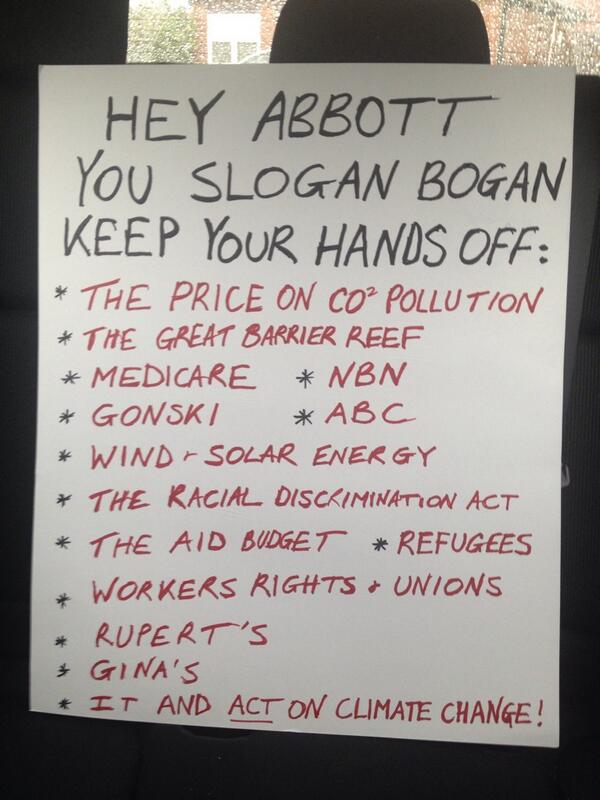 HEY ABBOTT
YOU SLOGAN BOGAN
KEEP YOUR HANDS OFF:
* THE PRICE ON CO² POLLUTION
* THE GREAT BARRIER REEF
* MEDICARE * NBN
* GONSKI * ABC
* WIND + SOLAR ENERGY
* THE RACIAL DISCRIMINATION ACT
* THE AID BUDGET * REFUGEES
* WORKERS RIGHTS + UNIONS
* RUPERT'S
* GINA'S
* IT AND ACT ON CLIMATE CHANGE!